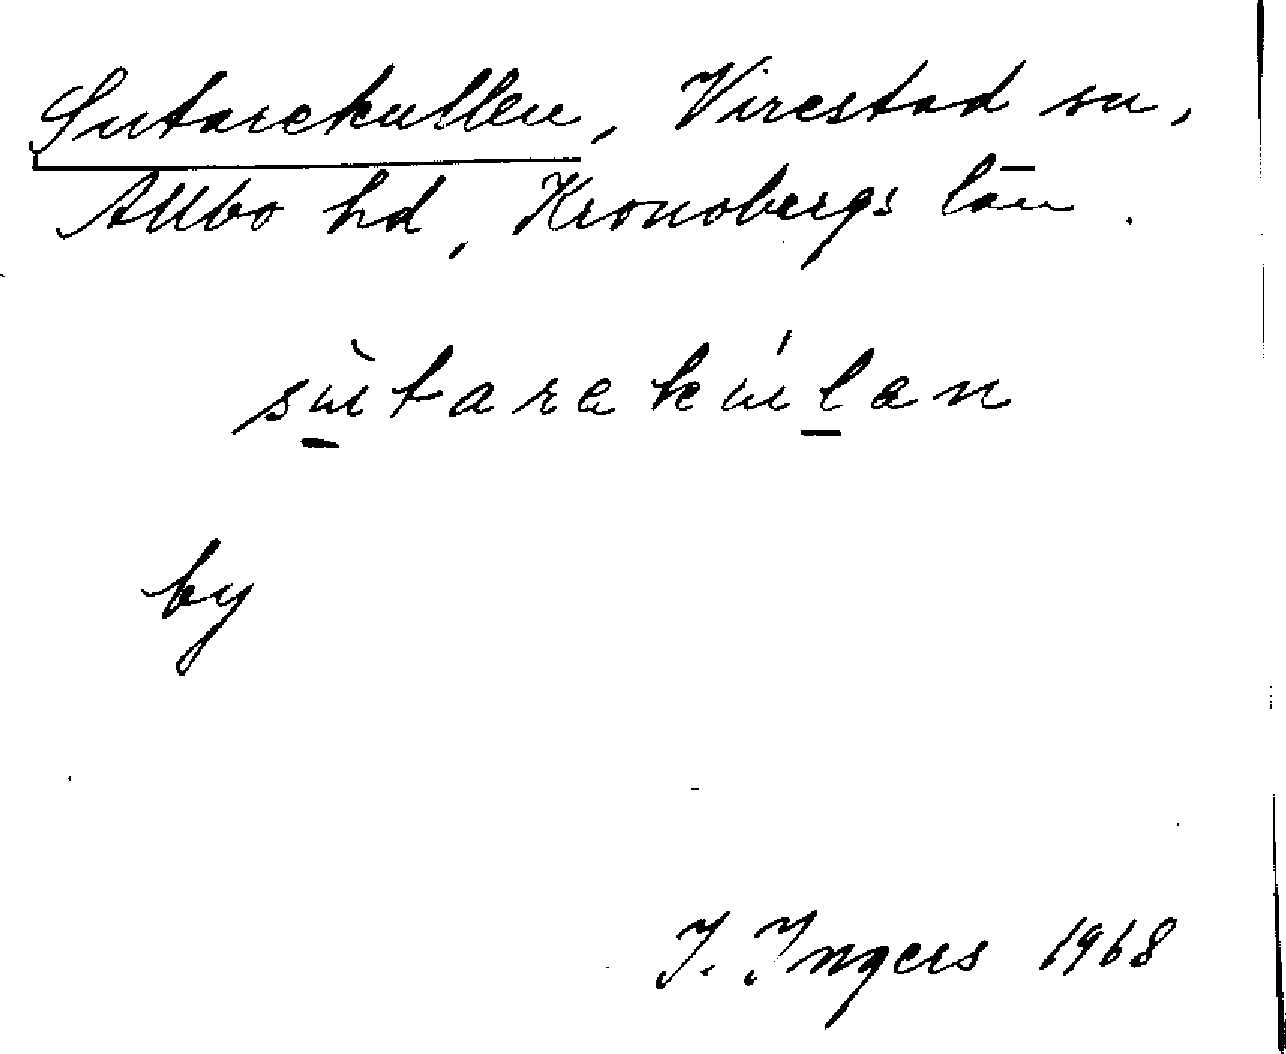 Sutarekullen, Virestad sn,
Allbo hd, Kronobergs län.
sùtarakúlan
by
I. Ingers 1968